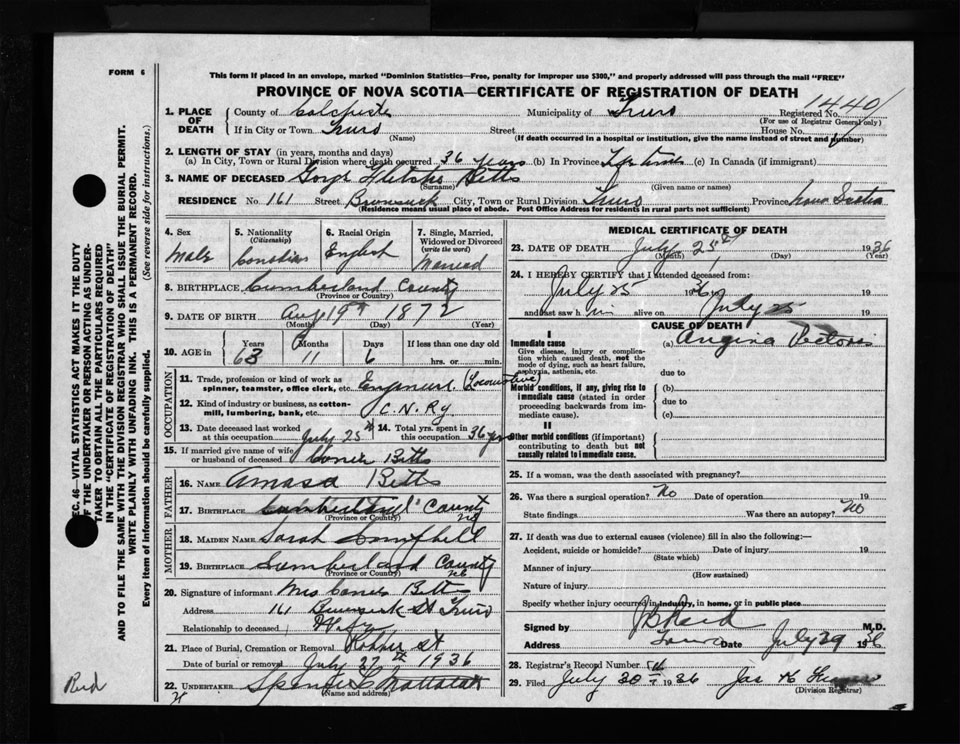 FORM 6
This form if placed in an envelope, marked "Dominion Statistics—Free, penalty for improper use $300," and properly addressed will pass through the mail "FREE"
PROVINCE OF NOVA SCOTIA—CERTIFICATE OF REGISTRATION OF DEATH
1. PLACE OF DEATH County of Colchester Municipality of Truro Registered No. 1440
(For use of Registrar General only)
If in City or Town Truro Street House No.
(Name) (If death occurred in a hospital or institution, give the name instead of street and number)
2. LENGTH OF STAY (in years, months and days)
(a) In City, Town or Rural Division where death occurred 36 years (b) In Province Life time (c) In Canada (if immigrant)
3. NAME OF DECEASED Fletcher Betts
(Surname) (Given name or names)
RESIDENCE No. 161 Street Brunswick City, Town or Rural Division Truro Province Nova Scotia
(Residence means usual place of abode. Post Office Address for residents in rural parts not sufficient)
4. Sex Male
5. Nationality (Citizenship) Canadian
6. Racial Origin English
7. Single, Married, Widowed or Divorced (write the word) Married
8. BIRTHPLACE Cumberland County
(Province or Country)
9. DATE OF BIRTH Aug 19th 1872
(Month) (Day) (Year)
10. AGE in Years 63 Months 11 Days 6 If less than one day old hrs. or min.
OCCUPATION
11. Trade, profession or kind of work as spinner, teamster, office clerk, etc. Engineer (Locomotive)
12. Kind of industry or business, as cotton-mill, lumbering, bank, etc. C.N.Ry.
13. Date deceased last worked at this occupation July 25th
14. Total yrs. spent in this occupation 36 yrs
15. If married give name of wife or husband of deceased Betts
FATHER
16. NAME Amasa Betts
17. BIRTHPLACE Cumberland County
(Province or Country) NS
MOTHER
18. MAIDEN NAME Sarah Campbell
19. BIRTHPLACE Cumberland County
(Province or Country) NS
20. Signature of informant Mrs Betts
Address 161 Brunswick St Truro
Relationship to deceased Wife
21. Place of Burial, Cremation or Removal Robie St
Date of burial or removal July 27th 1936
22. UNDERTAKER
(Name and address)
MEDICAL CERTIFICATE OF DEATH
23. DATE OF DEATH July 25th 1936
(Month) (Day) (Year)
24. I HEREBY CERTIFY that I attended deceased from:
July 25 1936
and last saw him alive on July 25 19
CAUSE OF DEATH
I
Immediate cause
Give disease, injury or complication which caused death, not the mode of dying, such as heart failure, asphyxia, asthenia, etc.
(a) Angina Pectoris
due to
Morbid conditions, if any, giving rise to immediate cause (stated in order proceeding backwards from immediate cause).
(b)
due to
(c)
II
Other morbid conditions (if important) contributing to death but not causally related to immediate cause.
25. If a woman, was the death associated with pregnancy?
26. Was there a surgical operation? No Date of operation 19
State findings Was there an autopsy? No
27. If death was due to external causes (violence) fill in also the following:—
Accident, suicide or homicide? Date of injury 19
(State which)
Manner of injury
(How sustained)
Nature of injury
Specify whether injury occurred in industry, in home, or in public place
Signed by Reid M.D.
Address Truro Date July 29 1936
28. Registrar's Record Number
29. Filed July 30 1936 Jas
(Division Registrar)
SEC. 46—VITAL STATISTICS ACT MAKES IT THE DUTY
OF THE UNDERTAKER OR PERSON ACTING AS UNDER-
TAKER TO OBTAIN ALL THE PARTICULARS REQUIRED
IN THE "CERTIFICATE OF REGISTRATION OF DEATH"
AND TO FILE THE SAME WITH THE DIVISION REGISTRAR WHO SHALL ISSUE THE BURIAL PERMIT.
WRITE PLAINLY WITH UNFADING INK. THIS IS A PERMANENT RECORD.
Every item of information should be carefully supplied. (See reverse side for instructions.)